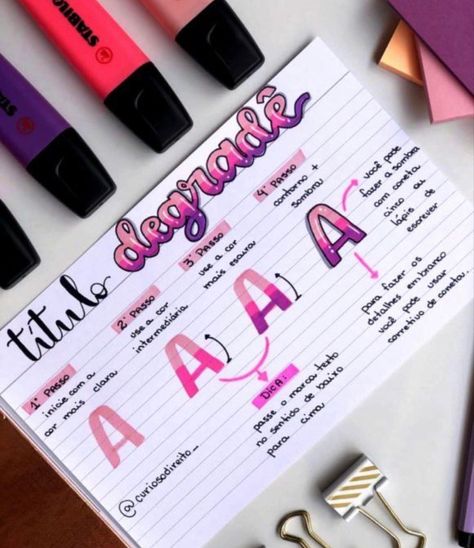 STABILO
STABILO
título degradê
1º PASSO
inicie com a
cor mais clara
A
2º PASSO
use a cor
intermediária
A
3º PASSO
use a cor
mais escura
A
4º PASSO
contorno +
sombra
A
você pode
fazer a sombra
com caneta
cinza ou
lápis de
escrever
para fazer os
detalhes em branco
você pode usar
corretivo de caneta.
DICA:
passe o marca texto
no sentido de baixo
para cima
@curiosodireito_